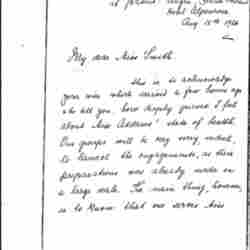 Hotel Alpenrose
Aug 15th 1926
My dear Miss Smith.
this is to acknowledge
your wire which arrived a few hours ago
to tell you, how deeply grieved I felt
about Miss Addams' state of health.
Our groups will be very very
to cancel the engagements, as there
preparations were already made on
a large scale. The main thing, however
is to know that our dear Miss